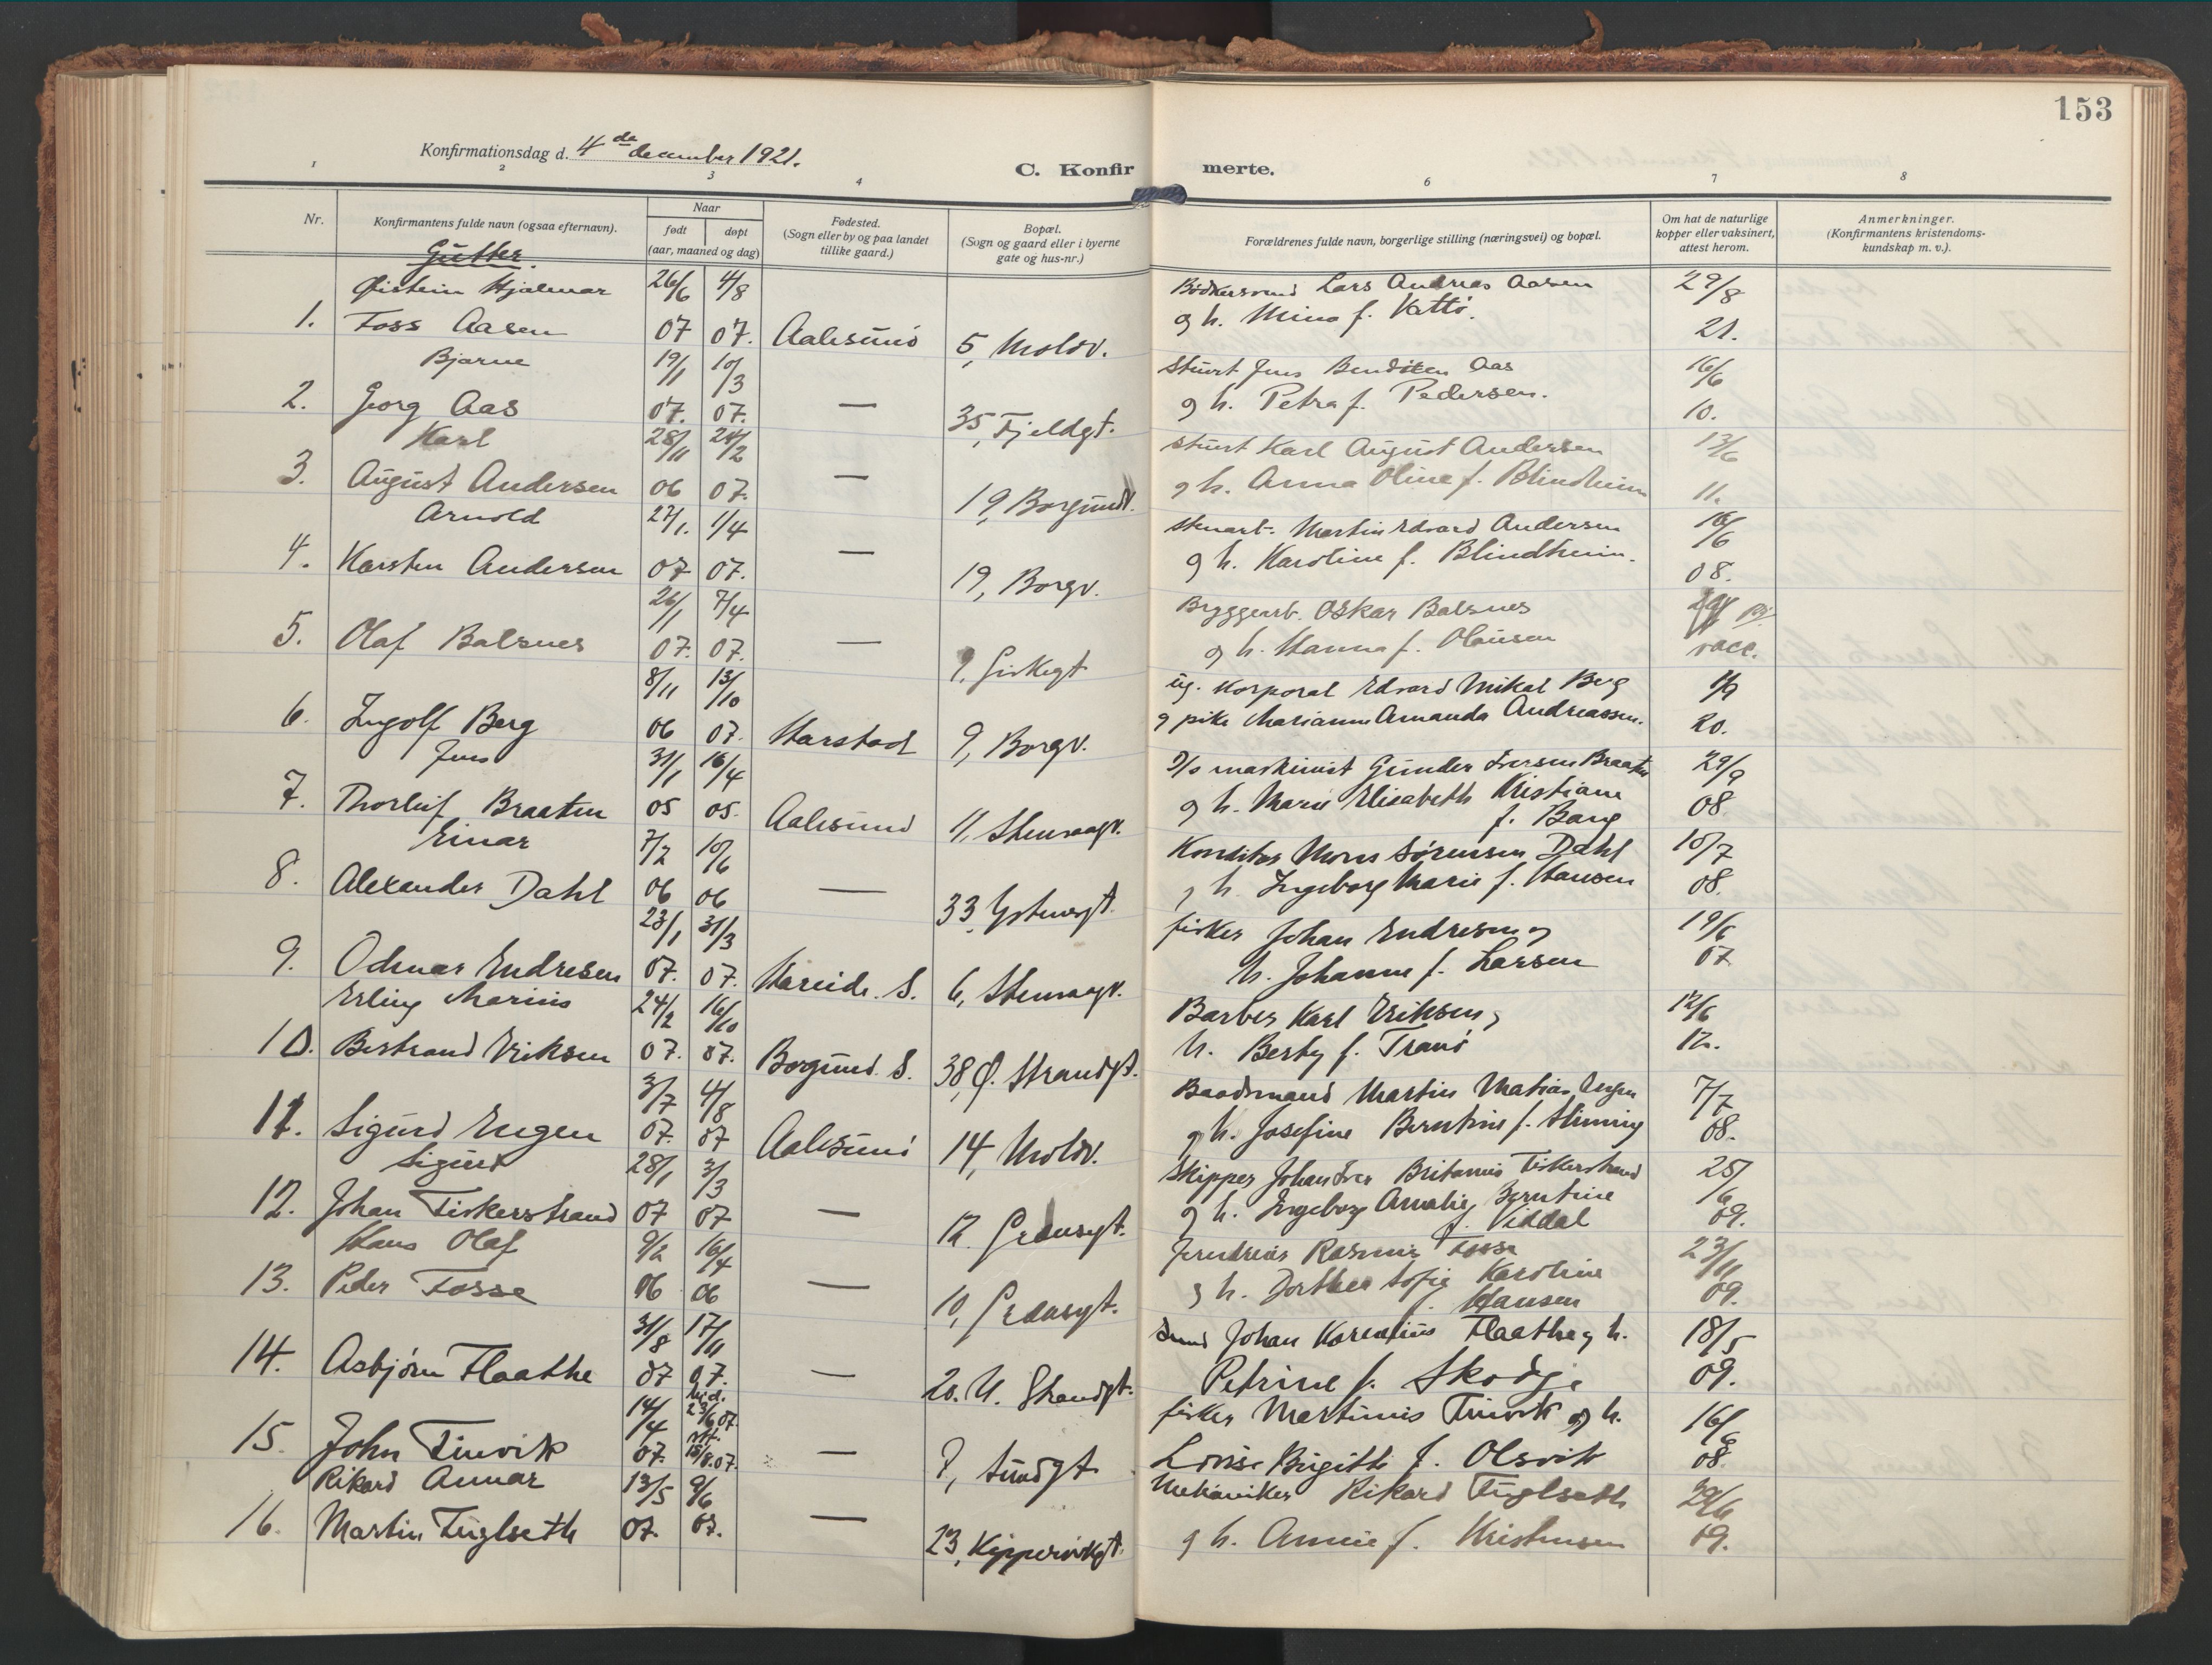 153
Konfirmationsdag d. 4de december 1921.
C. Konfirmerte.
1 2 3 4 6 7 8
Nr.
Konfirmantens fulde navn (ogsaa efternavn).
Naar
født døpt
(aar, maaned og dag)
Fødested.
(Sogn eller by og paa landet
tillike gaard.)
Bopæl.
(Sogn og gaard eller i byerne
gate og hus-nr.)
Forældrenes fulde navn, borgerlige stilling (næringsvei) og bopæl.
Om hat de naturlige
kopper eller vaksinert,
attest herom.
Anmerkninger.
(Konfirmantens kristendoms-
kundskap m. v.).
Gutter.
Øistein Hjalmar 26/6 4/8 Bødkersvend Lars Andreas Aasen 29/8
1. Foss Aasen 07 07. Aalesund 5, Moldv. g h. Mina f. Vattø. 21.
Bjarne 19/1 10/3 Stuert Jens Bendiken Aas 16/6
2. Georg Aas 07. 07. — 35, Fjeldgt. g h. Petra f. Pedersen. 10.
Karl 28/11 24/2 Stuert Karl August Andersen 13/6
3. August Andersen 06 07. — 19, Borgundv. g h. Anna Oline f. Blindheim 11.
Arnold 27/1. 1/4 Stuart. Martin Edvard Andersen 16/6
4. Karsten Andersen 07 07. — 19, Borgv. g h. Karoline f. Blindheim. 08.
26/1 7/4 Bryggearb. Oskar Balsnes
5. Olaf Balsnes 07. 07. — 9, Giskegt g h. Hanna f. Olausen vacc.
8/11 13/10 ug. Korporal Edvard Mikal Berg
6. Ingolf Berg 06 07. Harstad 9, Borgv. g pike Marianne Amanda Andreassen. 20.
Jens 31/1 16/4 D/s maskinist Gunder Iversen Braaten 29/9
7. Thorleif Braaten 05 05. Aalesund 11, Stenvaagv. g h. Marie Elisabeth Kristiane 08.
f. Barg
Einar 7/2 10/6 Konditor Mons Sørensen Dahl 10/7
8. Alexander Dahl 06 06 — 33, Ystenesgt. g h. Ingeborg Marie f. Hansen 08.
23/1 31/3 fisker Johan Endresen g 19/6
9. Odmar Endresen 07. 07. Hareide S. 6, Stenvaagv. h. Johanne f. Larsen 07
Erling Marius 24/2 16/10 Barber Karl Eriksen g 12/6
10. Bertrand Eriksen 07. 07. Borgund S. 38, Ø. Strandgt. h. Berby f. Tranø 12.
3/7 4/8 Baadsmand Martin Matias Engen 7/7
11. Sigurd Engen 07. 07 Aalesund 14, Moldv. g h. Josefine Berntine f. Slinning 08.
Sigurd 28/1 3/3 Skipper Johan Iver Britanus Fiskerstrand 25/6
12. Johan Fiskerstrand 07 07 — 12. Grensegt. g h. Ingeborg Amalie Berntine 09.
f. Viddal
Hans Olaf 9/2 16/4 Rasmus Fosse 23/11
13. Peder Fosse 06 06 — 10, Grensegt. g h. Dorthea Sofie Karoline 09.
f. Hansen
31/8 17/11 Johan Kornelius Flaathe g h. 18/5
14. Asbjørn Flaathe 07 07. — 20. N. Strandgt. Petrine f. Skodje 09.
14/4 hjd. 23/6 07. fisker Martinus Finvik og h. 16/6
15. John Finvik 07. st. 18/8.07. — 9, Sundgt Lovise Birgitte f. Olsvik 08.
Rikard Annar 13/5 9/6 Mekaniker Rikard Fuglseth 29/6
16. Martin Fuglseth 07. 07. — 23, Kippervikgt. g h. Annie f. Kristensen 09.